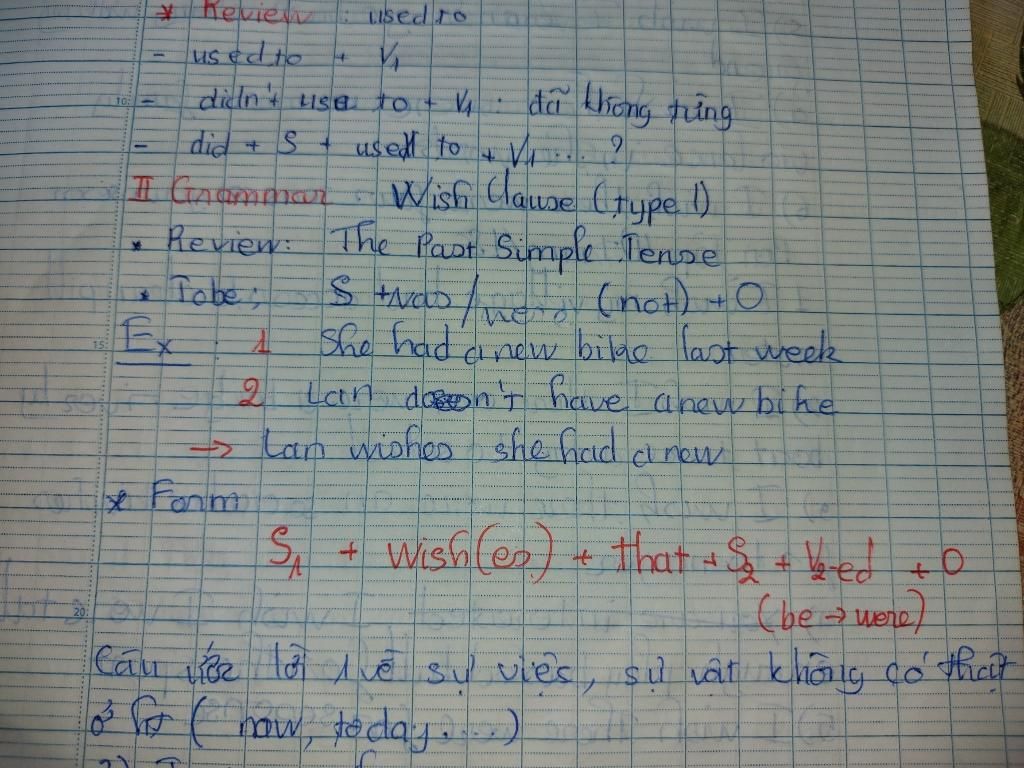 * Review : used to
- used to + V1
- didn't use to + V1 : đã không từng
- did + S + used to + V1 ... ?
II Grammar Wish Clause (type 1)
* Review: The Past Simple Tense
* Tobe: S + was / were (not) + O
Ex : 1 She had a new bike last week
2 Lan doesn't have a new bike
→ Lan wishes she had a new
* Form
S1 + wish(es) + that + S2 + V2-ed + O
(be → were)
Câu ước lời 1 về sự việc, sự vật không có thật
ở ht ( now, today ...)